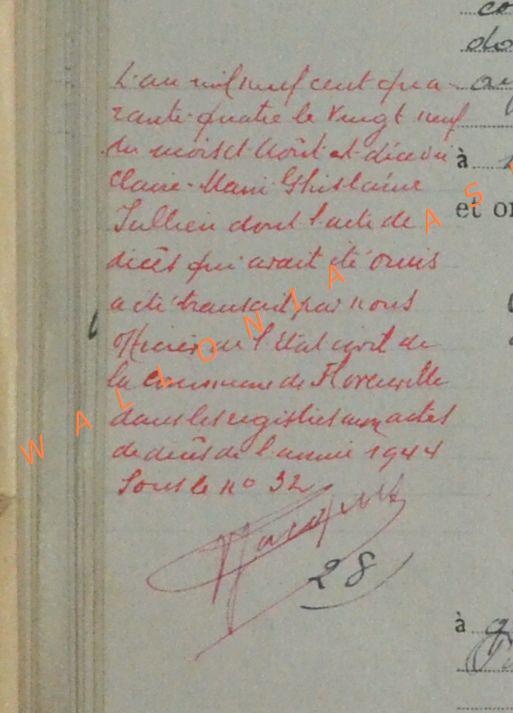 L'an mil neuf cent qua-
rante quatre le vingt neuf
du mois d'Août est décédée
Claire-Marie Ghislaine
Jullien dont l'acte de
décès qui avait été omis
a été transcrit par nous
Officier de l'état civil de
la commune de Florenville
dans les registres aux actes
de décès de l'année 1944
sous le n° 32
28
à
et
à
WALLONIA AS